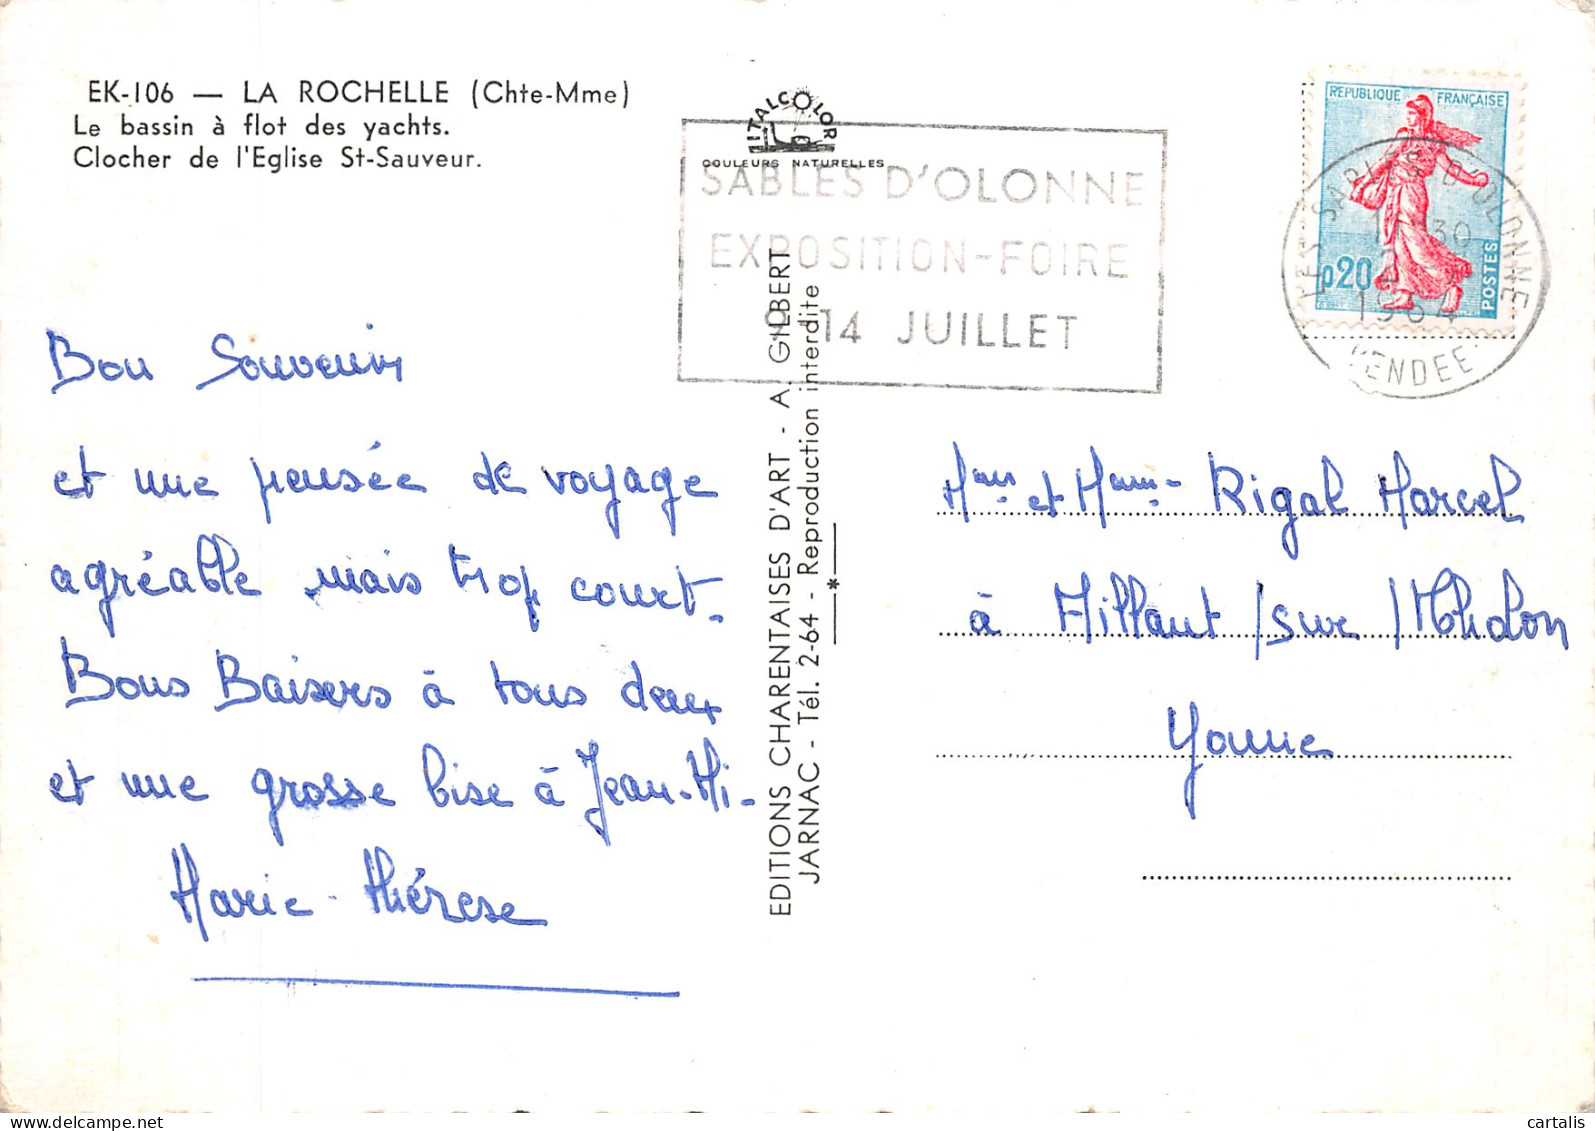 EK-106 — LA ROCHELLE (Chte-Mme)
Le bassin à flot des yachts.
Clocher de l'Eglise St-Sauveur.
ITALCOLOR
COULEURS NATURELLES
SABLES D'OLONNE
EXPOSITION-FOIRE
14 JUILLET
REPUBLIQUE FRANÇAISE
0,20
POSTES
LES SABLES D'OLONNE
30
1964
VENDEE
Bon Souvenir
et une pensée de voyage
agréable mais trop court.
Bons Baisers à tous deux
et une grosse bise à Jean-Mi-
Marie-Thérèse
EDITIONS CHARENTAISES D'ART - A. GILBERT
JARNAC - Tél. 2-64 - Reproduction interdite
et Rigal Marcel
à Millaut / sur / Tholon
Yonne
cartalis